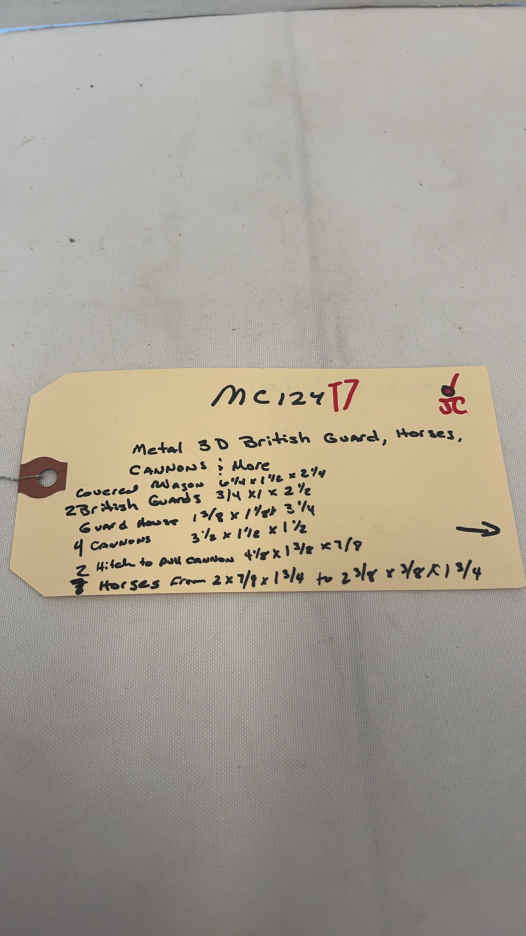 MC124 T7
JC
Metal 3D British Guard, Horses,
CANNONS & More
Covered Wagon 6 1/4 x 1 1/2 x 2 1/4
2 British Guards 3/4 x 1 x 2 1/2
Guard House 1 3/8 x 1 1/8 x 3 1/4
4 CANNONS 3 1/2 x 1 1/2 x 1 1/2
2 Hitch to Pull CANNON 4 1/8 x 1 3/8 x 7/8
Horses From 2 x 7/8 x 1 3/4 to 2 3/8 x 3/8 x 1 3/4